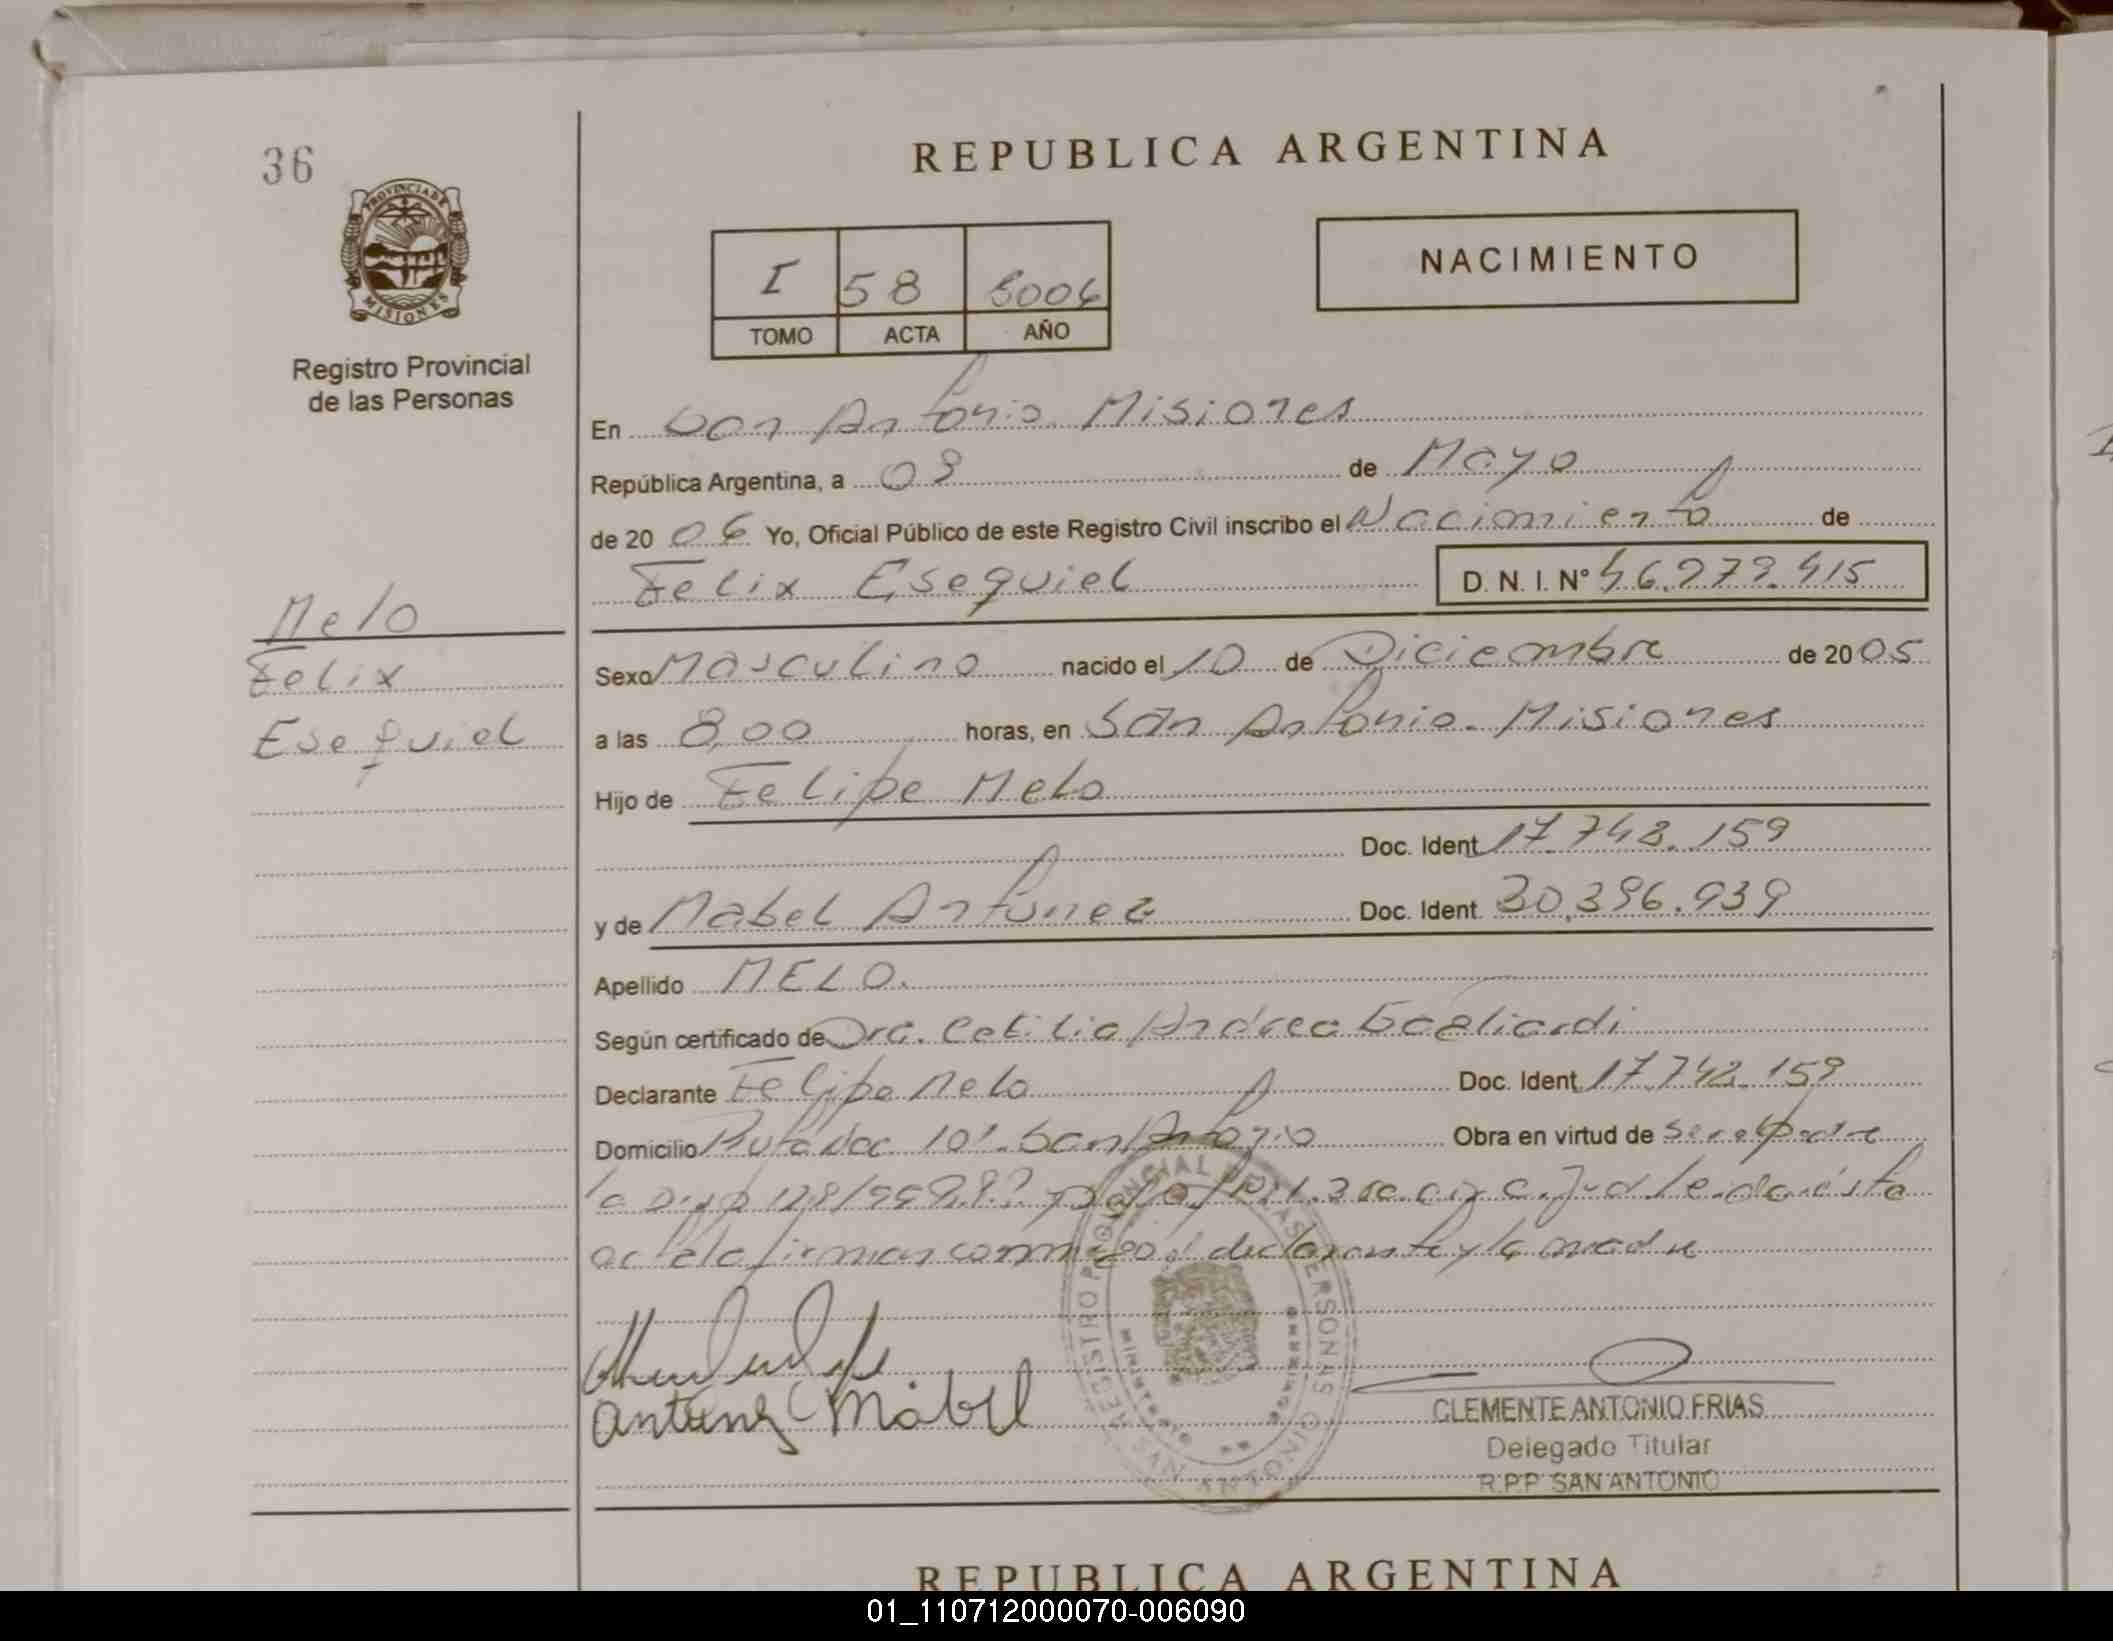 36
REPUBLICA ARGENTINA
PROVINCIA DE
MISIONES
Registro Provincial
de las Personas
I 58 2006
TOMO ACTA AÑO
NACIMIENTO
En San Antonio Misiones
República Argentina, a 09 de Mayo
de 20 06 Yo, Oficial Público de este Registro Civil inscribo el Nacimiento de
Felix Esequiel D. N. I. N° 46.
Melo
Felix
Esequiel
Sexo Masculino nacido el 10 de Diciembre de 20 05
a las 8,00 horas, en San Antonio. Misiones
Hijo de Felipe Melo
Doc. Ident. 17.742.159
y de Mabel Antunez Doc. Ident. 30.396.939
Apellido MELO.
Según certificado de Dra. Andrea Gagliardi
Declarante Felipe Melo Doc. Ident. 17.742.159
Domicilio Ruta 101. San Antonio Obra en virtud de ser el padre
leida ésta
acta la firman conmigo el declarante y la madre
Antunez Mabel
REGISTRO PROVINCIAL DE LAS PERSONAS
SAN ANTONIO
CLEMENTE ANTONIO FRIAS
Delegado Titular
R.P.P. SAN ANTONIO
REPUBLICA ARGENTINA
01_110712000070-006090